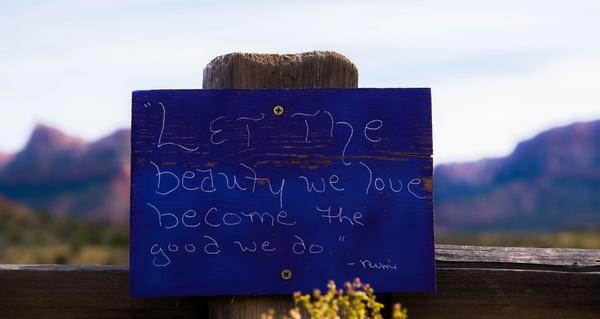 "Let The
beauty we love
become the
good we do."
- rumi